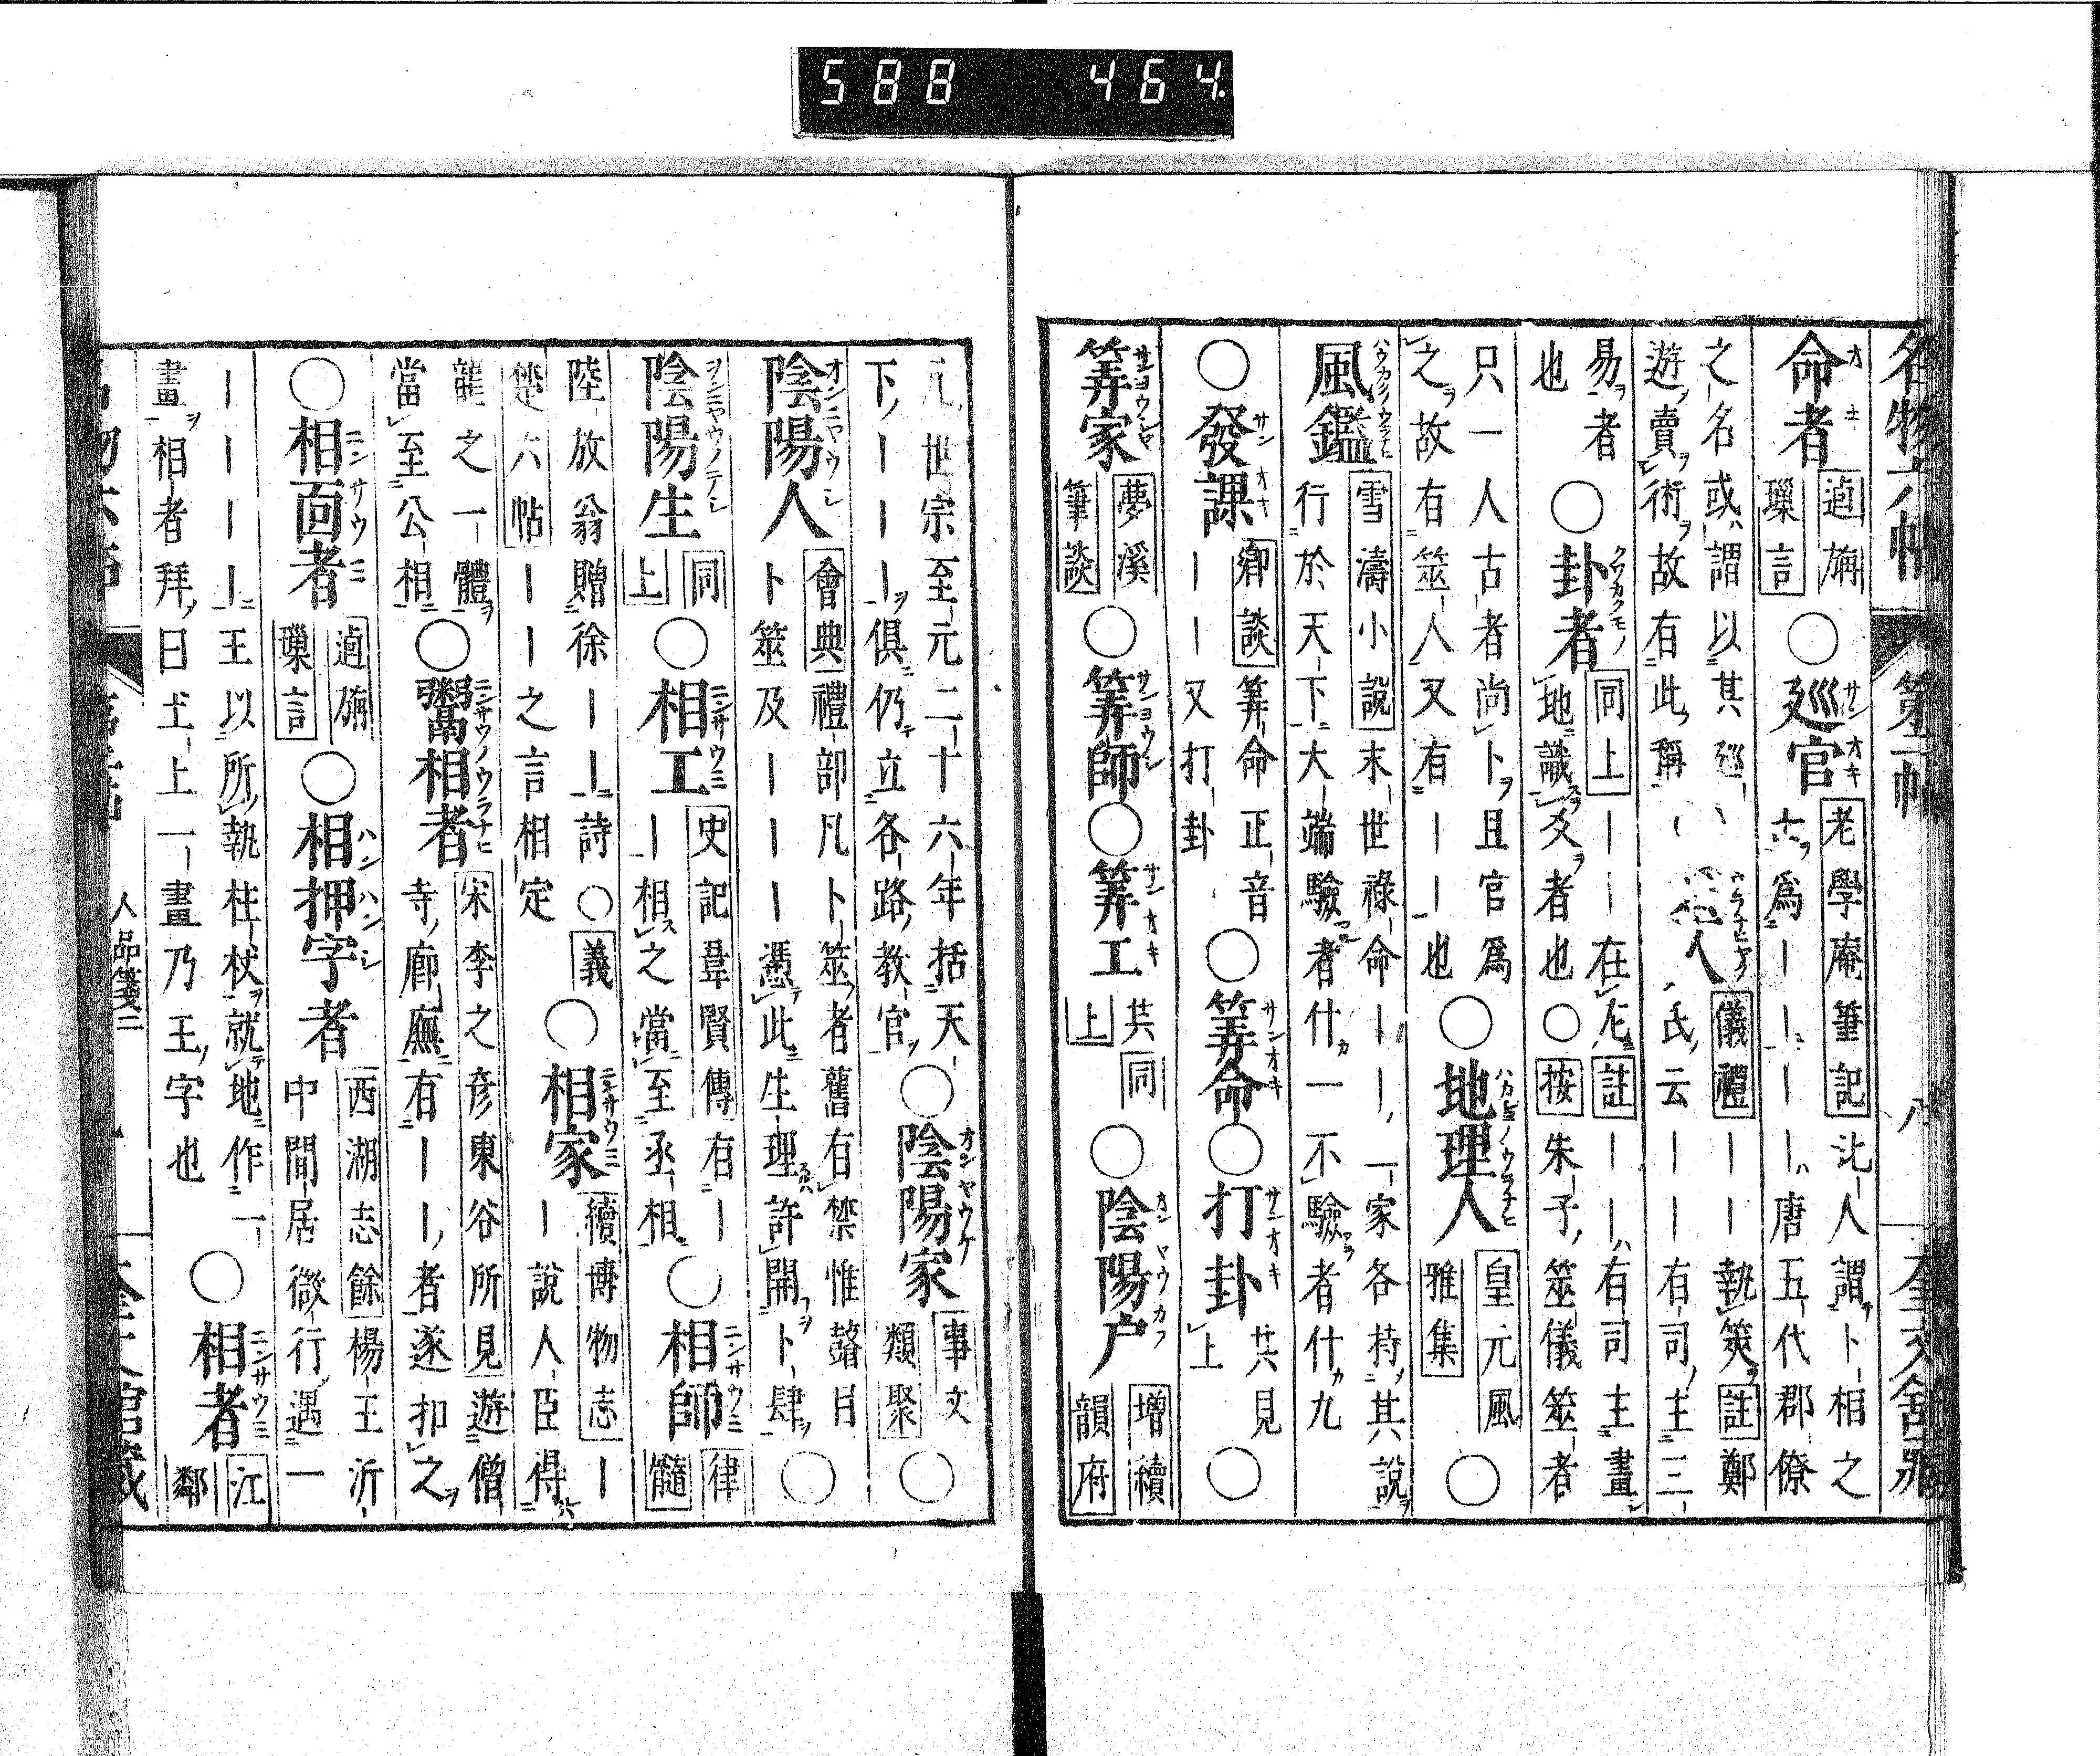 588 464
名物六帖 第二帖 八 奎文舘刋
命者 逌旃璅言 ○ 廵官 老學庵筆記 北人謂卜相之
士爲――――唐五代郡僚
之名或謂以其廵
遊賣術故有此稱 人 儀禮 ――執筴 註 鄭
氏云――有司主三
易者 ○ 卦者 同上 ――在左 註 ――有司主畫
也 地識爻者也 ○ 按 朱子筮儀筮者
只一人古者尚卜且官爲
之故有筮人又有――也 ○ 地理人 皇元風雅集 ○
風鑑 雪濤小說 末世祿命――一家各持其說
行於天下大端驗者什一不驗者什九
○ 發課 卿談 筭命正音 ――又打卦 ○ 筭命 ○ 打卦 共見上 ○
筭家 夢溪筆談 ○ 筭師 ○ 筭工 共同上 ○ 陰陽户 增續韻府
元世宗至元二十六年括天
下―――俱仍立各路教官 ○ 陰陽家 事文類聚 ○
陰陽人 會典 禮部凡卜筮者舊有禁惟瞽目
卜筮及―――憑此生理許開卜肆 ○
陰陽生 同上 ○ 相工 史記韋賢傳 有―
―相之當至丞相 ○ 相師 律髓
陸放翁贈徐――詩 ○ 義
楚六帖 ――之言相定 ○ 相家 續博物志 ―
―說人臣得
龍之一體
當至公相 ○ 鬻相者 宋李之彦東谷所見 遊僧
寺廊廡有――者遂扣之
○ 相面者 逌旃璅言 ○ 相押字者 西湖志餘 楊王沂
中閒居微行遇一
――――王以所執柱杖就地作一
畫相者拜曰土上一畫乃王字也 ○ 相者 江鄰
人品箋二